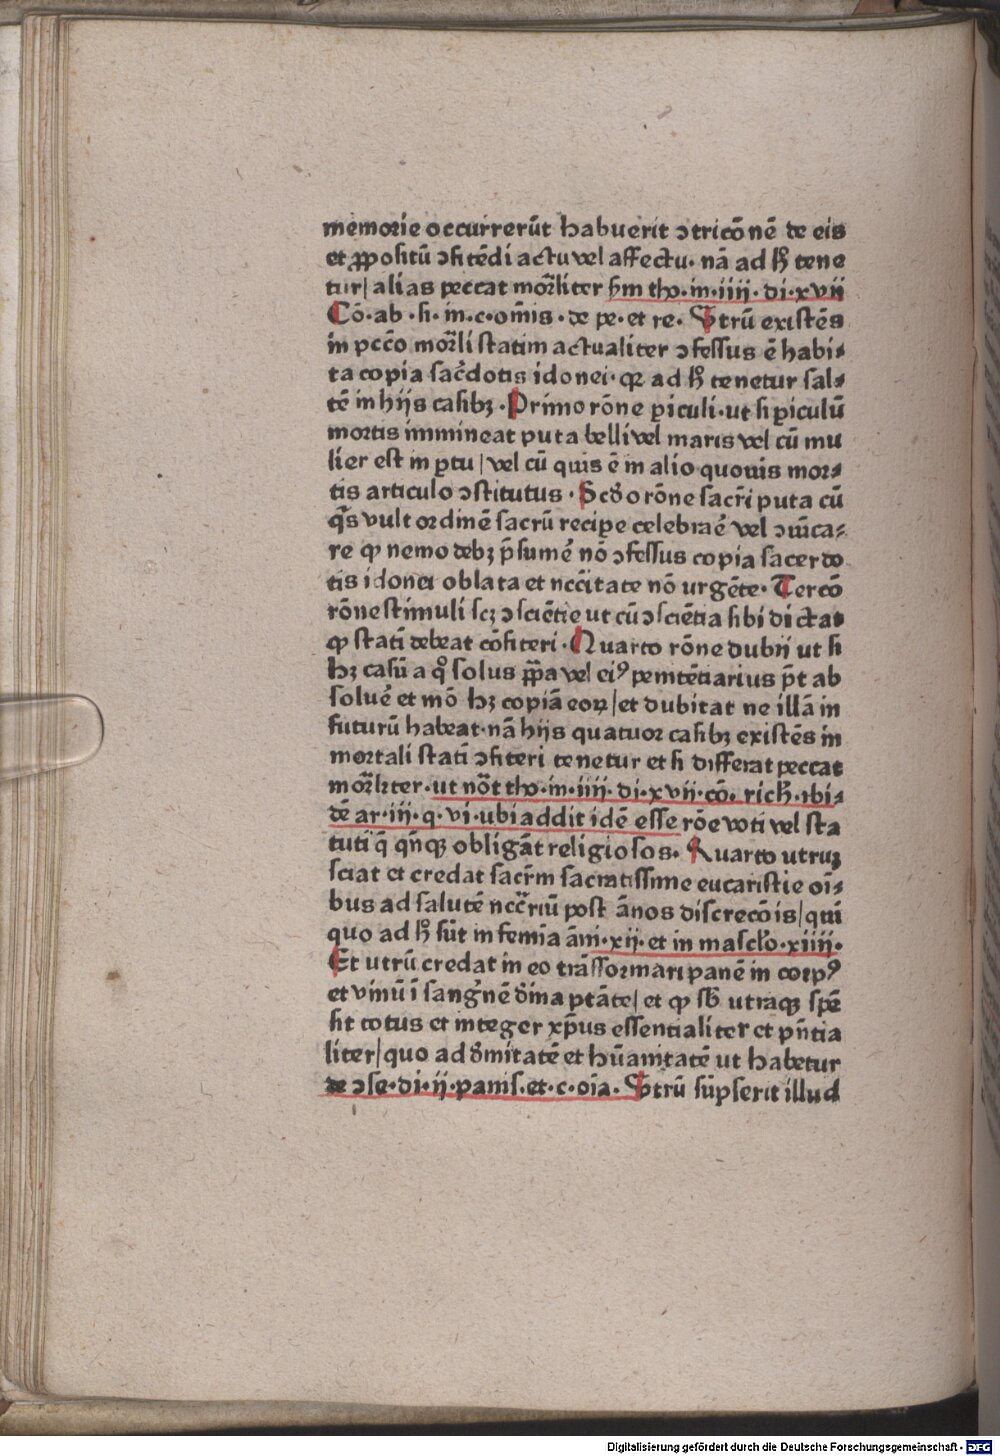 memorie occurrerūt habuerit ꝯtricōnē de eis
et ꝓpositū ꝯfitēdi actu vel affectu· nā ad hͦ tene
tur/ alias peccat mor̄liter sm̄ tho·in·iiij·di·xvij
Cō·ab·si·in·c·om̄is·de pe·et re· Utrū existēs
in pcc̄o mor̄li statim actualiter ꝯfessus ē habi⸗
ta copia sac̄dotis idonei· qꝛ ad hͦ tenetur sal⸗
tē in hijs casibꝫ· Primo rōne ꝑiculi·ut si ꝑiculū
mortis immineat puta belli vel maris vel cū mu
lier est in ꝑtu/ vel cū quis ē in alio quouis mor⸗
tis articulo ꝯstitutus· Scd̄o rōne sacr̄i puta cū
q̄s vult ordinē sacrū recipe celebrar̄e vel ꝯīca⸗
re qꝫ nemo debꝫ p̄sumē nō ꝯfessus copia sacerdo
tis idonei oblata et ncc̄itate nō urgēte· Tercō
rōne stimuli scꝫ ꝯsciētie ut cū ꝯsciētia sibi dictat
qꝫ statī debeat cōfiteri· Quarto rōne dubij ut si
hꝫ casū a qͦ solus ꝑꝑa vel eiꝰ penitētiarius p̄t ab
soluē et mō hꝫ copiā eoꝝ/ et dubitat ne illā in
futurū habeat·nā hijs quatuor casibꝫ existēs in
mortali statī ꝯfiteri tenetur et si differat peccat
mor̄liter·ut nōt tho·in·iiij·di·xvij·cō· rich̄·ibi⸗
dē ar·iij·q·vi·ubi addit idē esse rōe voti vel sta
tuti q̄ qn̄qꝫ obligāt religiosos· Quarto utruꝫ
sciat et credat sacr̄m sacratissime eucaristie oī⸗
bus ad salutē ncc̄riū post ānos discrecōis/ quī
quo ad hͦ sūt in femīa āni·xij·et in mascl̄o·xiiij·
Et utrū credat in eo trāssormari panē in corpꝰ
et vinū ī sangn̄ē d̄ina ptāte/ et qꝫ sb̄ utraqꝫ spē
sit totus et integer xp̄us essentialiter et pn̄tia
liter/ quo ad d̄initatē et hūanitatē ut habetur
de ꝯse·di·ij·panis·et·c·oīa· Utrū sūpserit illud
Digitalisierung gefördert durch die Deutsche Forschungsgemeinschaft - DFG